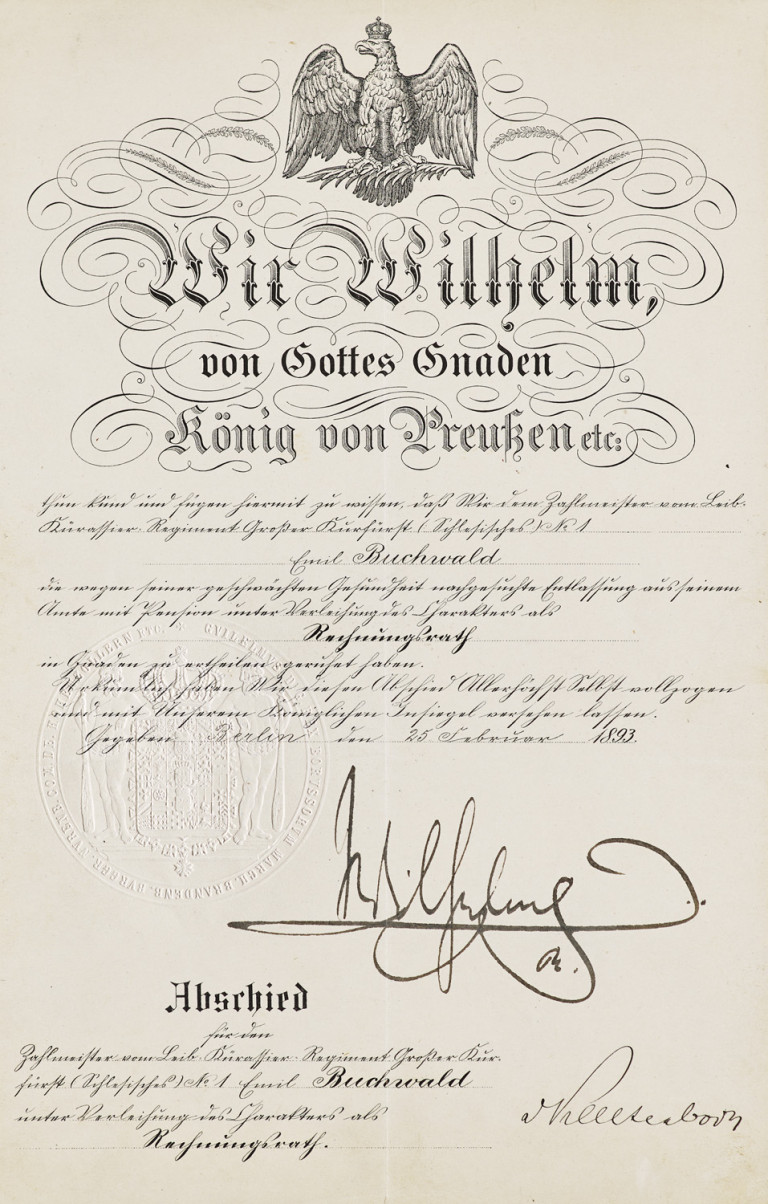 Wir Wilhelm,
von Gottes Gnaden
König von Preußen etc:
thun kund und fügen hiermit zu wissen, daß Wir dem Zahlmeister vom Leib-
Kürassier-Regiment Großer Kurfürst (Schlesisches) № 1
Emil Buchwald
die wegen seiner geschwächten Gesundheit nachgesuchte Entlassung aus seinem
Amte mit Pension unter Verleihung des Charakters als
Rechnungsrath
in Gnaden zu ertheilen geruhet haben.
Urkundlich haben Wir diesen Abschied Allerhöchst Selbst vollzogen
und mit Unserem Königlichen Insiegel versehen lassen.
Gegeben Berlin den 25 Februar 1893.
Wilhelm
R.
Abschied
für den
Zahlmeister vom Leib-Kürassier-Regiment Großer Kur-
fürst (Schlesisches) № 1 Emil Buchwald
unter Verleihung des Charakters als
Rechnungsrath.